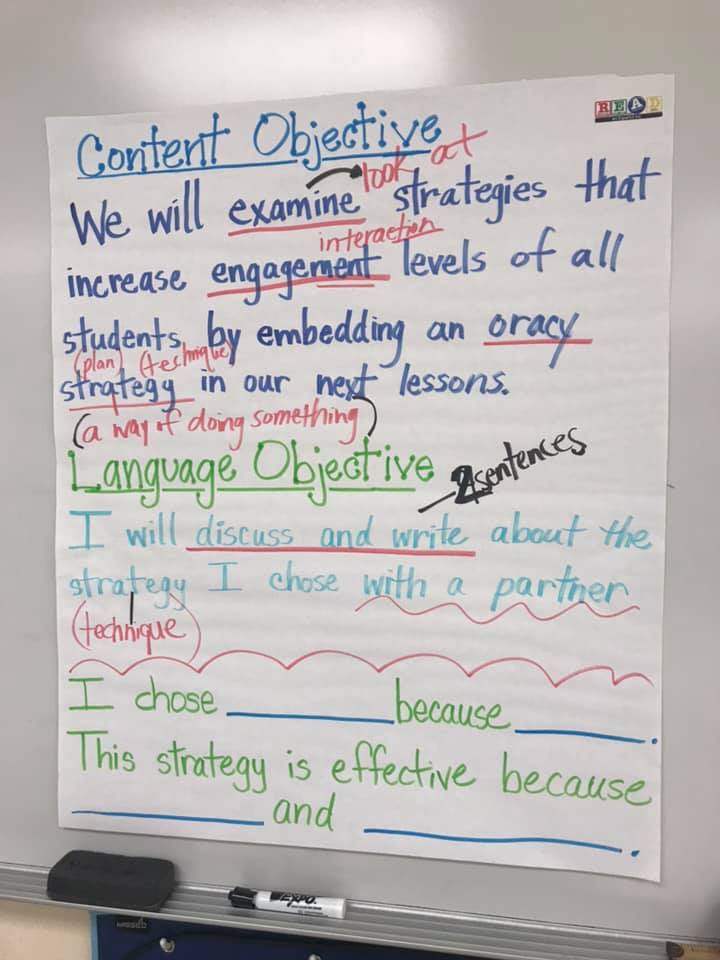 READ
Content Objective
look at
We will examine strategies that
interaction
increase engagement levels of all
students by embedding an oracy
(plan) (technique)
strategy in our next lessons.
(a way of doing something)
Language Objective
2 sentences
I will discuss and write about the
strategy I chose with a partner
(technique)
I chose ________ because ________.
This strategy is effective because
________ and ________.
EXPO